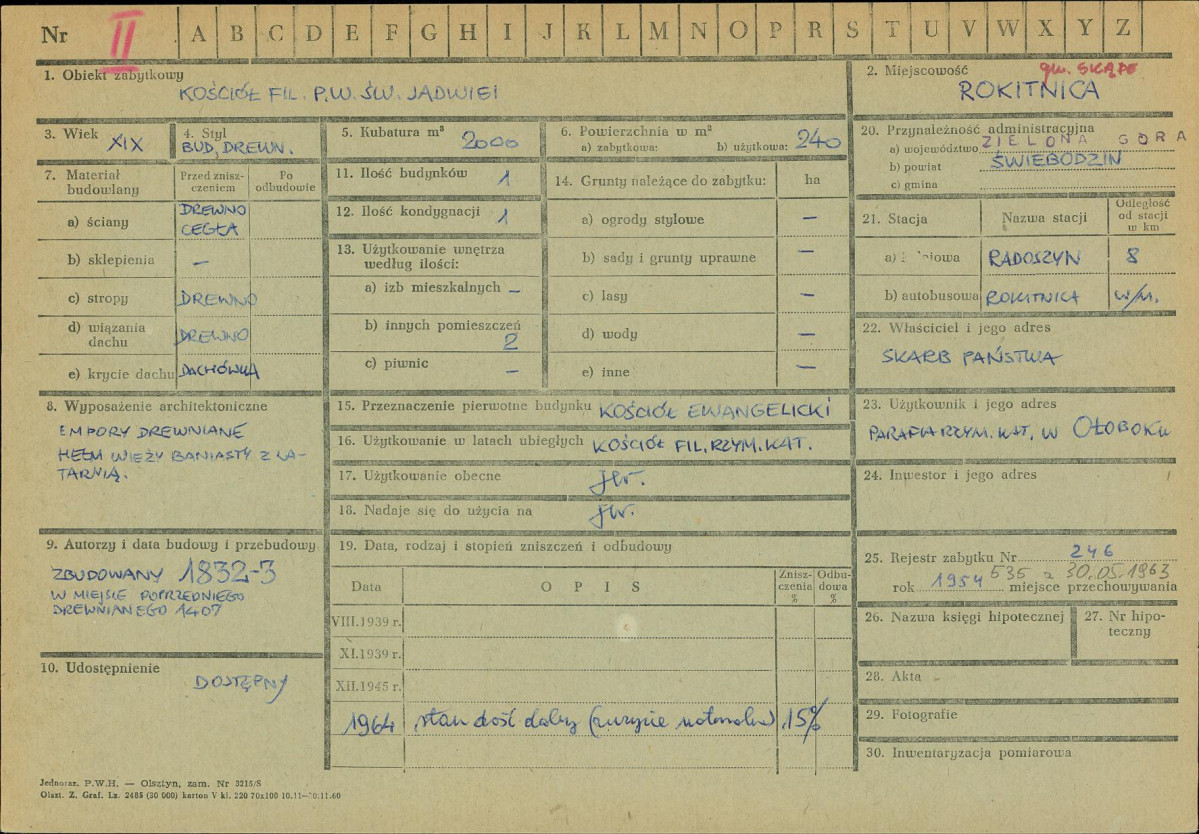 Nr II A B C D E F G H I J K L M N O P R S T U V W X Y Z
1. Obiekt zabytkowy
KOŚCIÓŁ FIL. P.W. ŚW. JADWIGI
2. Miejscowość gm. SKĄPE
ROKITNICA
3. Wiek XIX
4. Styl
BUD. DREWN.
5. Kubatura m³ 2000
6. Powierzchnia w m²
a) zabytkowa: b) użytkowa: 240
20. Przynależność administracyjna
a) województwo ZIELONA GÓRA
b) powiat ŚWIEBODZIN
c) gmina
7. Materiał budowlany
Przed zniszczeniem
Po odbudowie
a) ściany DREWNO
CEGŁA
b) sklepienia –
c) stropy DREWNO
d) wiązania dachu DREWNO
e) krycie dachu DACHÓWKA
11. Ilość budynków 1
12. Ilość kondygnacji 1
13. Użytkowanie wnętrza
według ilości:
a) izb mieszkalnych –
b) innych pomieszczeń
2
c) piwnic –
14. Grunty należące do zabytku: ha
a) ogrody stylowe –
b) sady i grunty uprawne –
c) lasy –
d) wody –
e) inne –
21. Stacja Nazwa stacji Odległość
od stacji
w km
a) RADOSZYN 8
b) autobusowa ROKITNICA W/M.
22. Właściciel i jego adres
SKARB PAŃSTWA
8. Wyposażenie architektoniczne
EMPORY DREWNIANE
HEŁM WIEŻY BANIASTY Z LA-
TARNIĄ.
15. Przeznaczenie pierwotne budynku KOŚCIÓŁ EWANGELICKI
16. Użytkowanie w latach ubiegłych KOŚCIÓŁ FIL. RZYM. KAT.
17. Użytkowanie obecne jw.
18. Nadaje się do użycia na jw.
23. Użytkownik i jego adres
PARAFIA RZYM. KAT. W OŁOBOKU
24. Inwestor i jego adres
9. Autorzy i data budowy i przebudowy
ZBUDOWANY 1832-3
W MIEJSCE POPRZEDNIEGO
DREWNIANEGO 1407
19. Data, rodzaj i stopień zniszczeń i odbudowy
Data OPIS Znisz-
czenia
% Odbu-
dowa
%
VIII.1939 r.
XI.1939 r.
XII.1945 r.
1964 stan dość dobry (zużycie naturalne) 15%
25. Rejestr zabytku Nr 246
535 z 30.05.1963
rok 1954 miejsce przechowywania
26. Nazwa księgi hipotecznej
27. Nr hipo-
teczny
10. Udostępnienie
DOSTĘPNY
28. Akta
29. Fotografie
30. Inwentaryzacja pomiarowa
Jednoraz. P.W.H. — Olsztyn, zam. Nr 3215/S
Olszt. Z. Graf. Lz. 2485 (30 000) karton V kl. 220 70x100